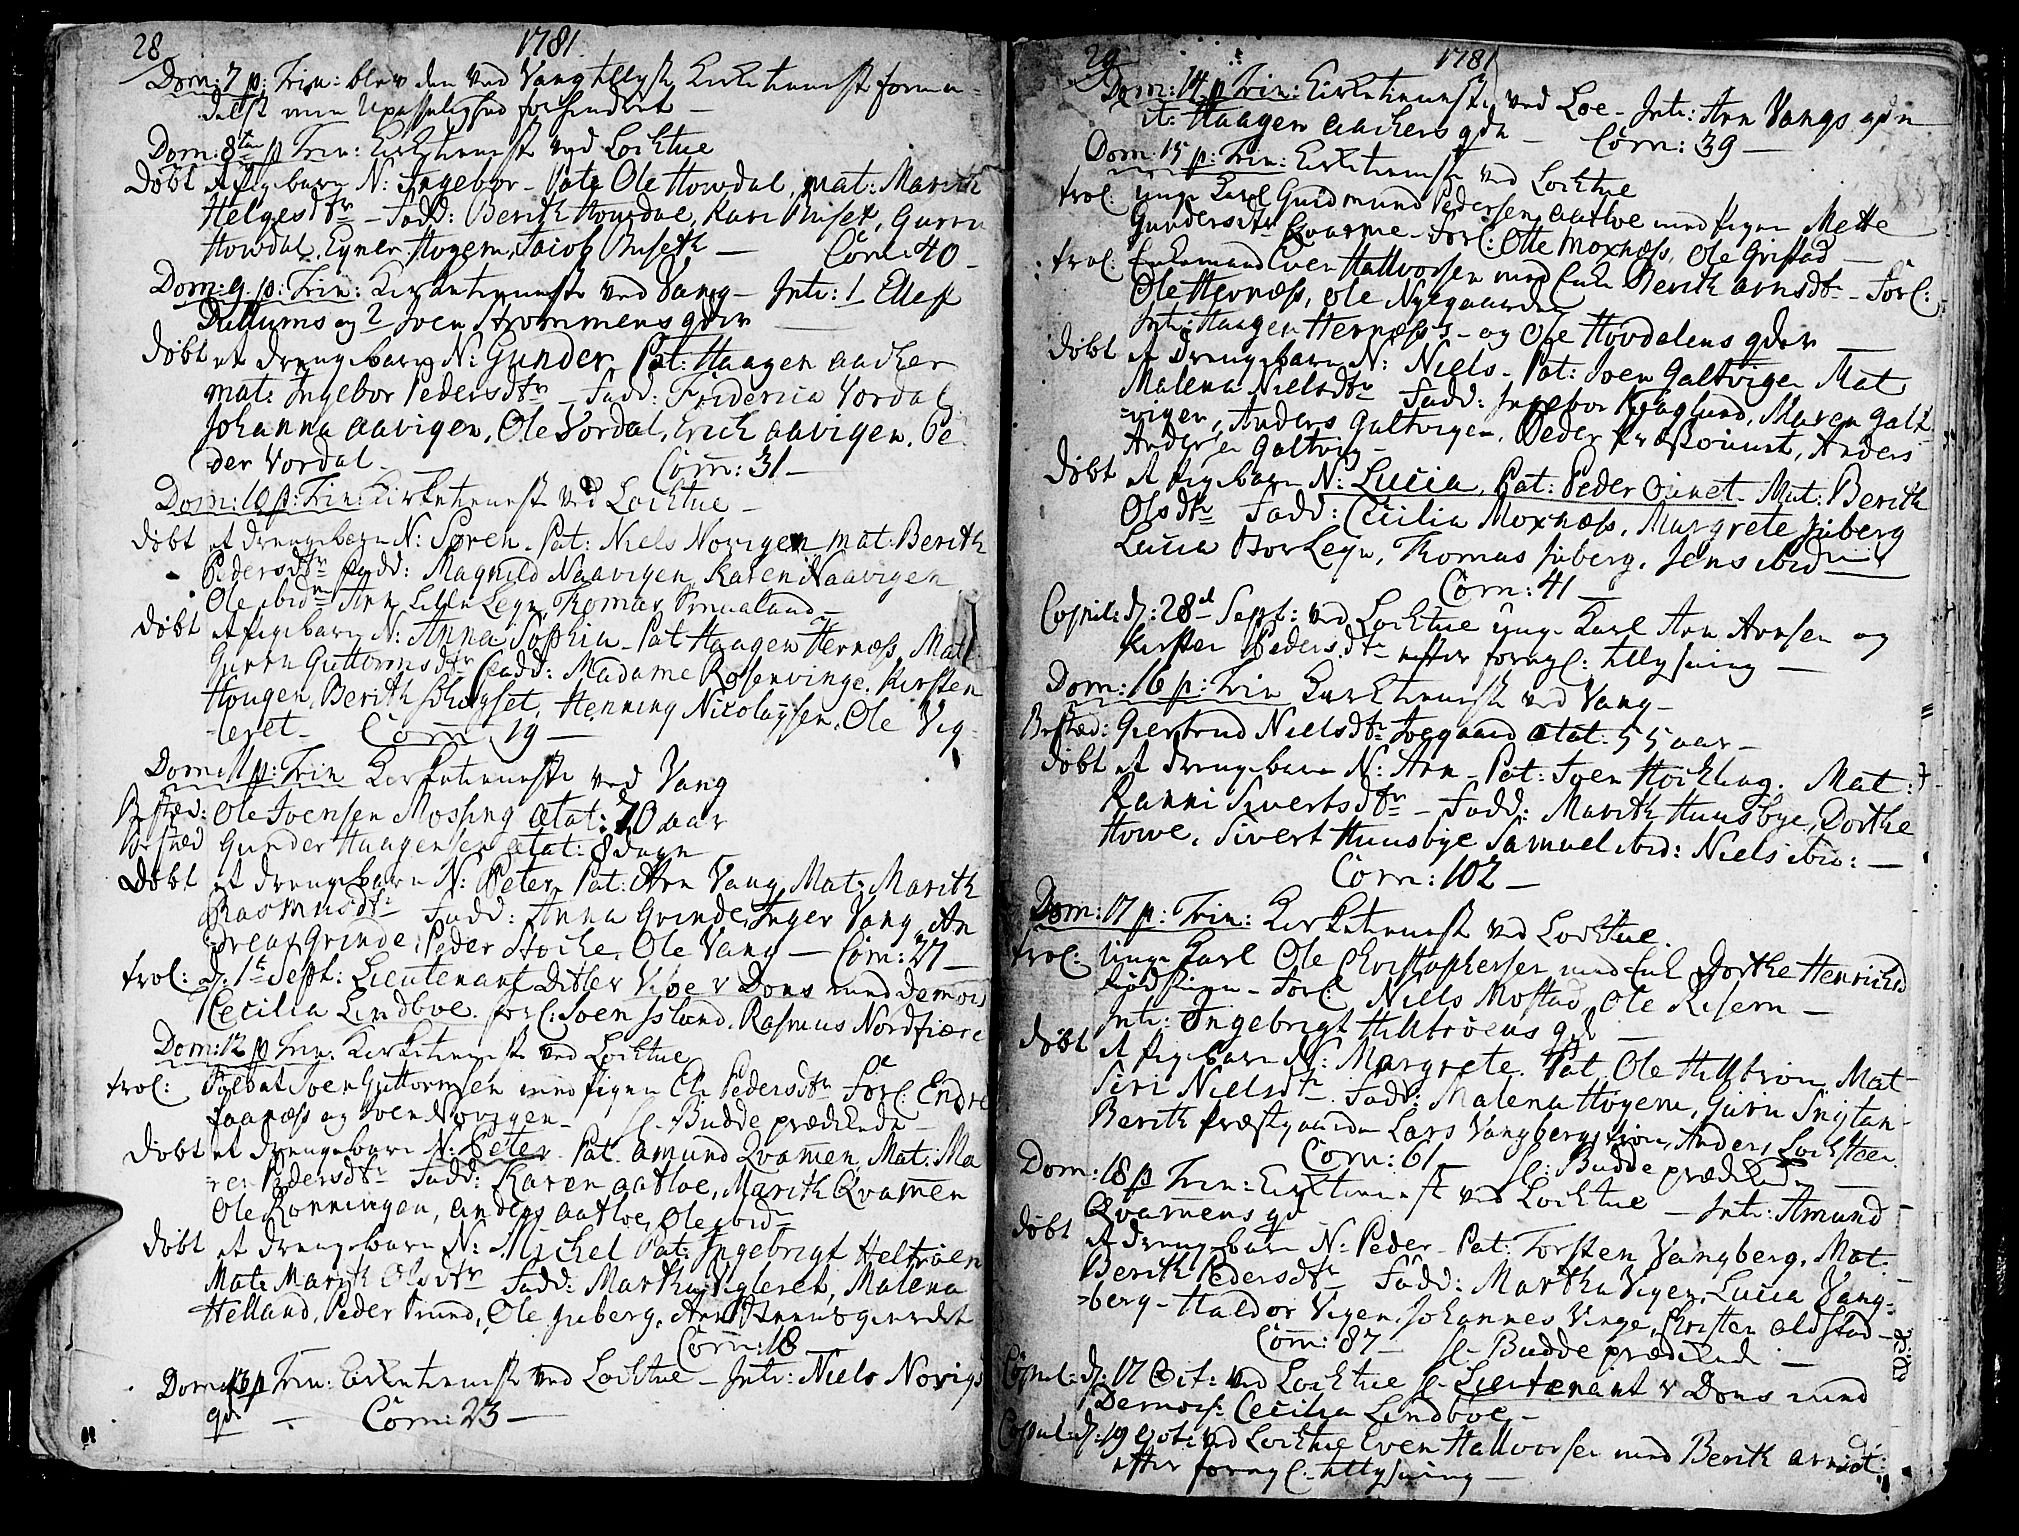 28 1781
Dom: 7 p: Trin: blev den ved Vang tillyst Kirketienneste forme-
delst min Upasselighed forhindret —
Dom: 8 p Trin: Kirketienneste ved Lochtue
Døbt et Pigebarn N: Ingebor - Pat: Ole Howdal, mat: Marith
Helgesdtr — Fadd: Berith Howdal, Kari Buseth, Guru
Howdal, Eyner Hogem, Jacob Buseth — Com: 40 —
Dom: 9 p: Trin: Kirketienneste ved Vang — Intr: 1 Ellef
Rellums og 2 Joen Strømmens qder
døbt et drengebarn N: Gunder Pat: Haagen aacker
mat: Ingebor Pedersdtr — Fadd: Fridericia Vordal
Johanna aavigen, Ole Vordal, Erich aavigen, Pe-
der Vordal — Com: 31 —
Dom: 10 p: Trin: Kirketienneste ved Lochtue —
døbt et drengebarn N: Søren. Pat: Niels Novigen mat: Berith
Pedersdtr Fadd: Magnild Naavigen, Karen Naavigen
Ole ibidm Arn Lille Legn, Thomas
Døbt et Pigebarn N: Anna Sophia — Pat Haagen Hernæss, Mat:
Guren Guttormsdtr Fadd: Madame Rosenvinge. Kirsten
Hougen, Berith, Henning Nicolaysen, Ole Vig-
leret — Com: 19 —
Dom: 11 p: Trin Kirketienneste ved Vang
Bested: Ole Joensen Mossing ætat: 70 aar
Bested Gunder Haagensen ætat: 8 dage
Døbt et drengebarn N: Peter. Pat: Arn Vang, Mat: Marith
Rasmusdtr Fadd: Anna Grinde, Inger Vang, An
dreas Grinde, Peder Stoche, Ole Vang — Com: 27 —
trol: d: 1te Sept: Lieutenant Ditlev Vibe v Dons med Demois
Cecilia Lindboe. forl: Soen, Rasmus Nordfiære
Dom: 12 p Trin: Kirketienneste ved Lochtue
trol: Soldat Joen Guttormsen med Pigen Eli Pedersdtr Forl: Endre
Faanæss og Joen Novigen — Hr Budde prædikede
Døbt et drengebarn N: Peter Pat. Amund Qvamen, Mat: Ma
ren Pedersdtr Fadd: Karen aatloe, Marith Qvamen
Ole Rønningen, anders aatloe, Ole ibidm
Døbt et drengebarn N: Michel Pat: Ingebrigt Heltröen
Mat: Marith Olsdtr Fadd: Martha Vigleret, Malena
Helland, Peder Trund, Ole Juberg, Arn
Com: 18
Dom: 13 p Trin: Kirketienneste ved Lochtue — Intr: Niels Novigs
qde — Com: 23 —
29 1781
Dom: 14 p Trin: Kirketienneste ved Loe — Intr: Arn Vangs qde
it: Haagen aackers qde — Com: 39 —
Dom: 15 p: Trin: Kirketienneste ved Lochtue
trol: unge Karl Guidmund Pedersen aatloe med Pigen Mette
Gundersdtr Qvarme — Forl: Otte Moxness, Ole Gristad —
trol: Enkemand Even Hallvorsen med Enke Berith Arnsdtr — Forl:
Ole Hernæss, Ole Nygaarden
Intr: Haagen Hernæss's — og Ole Howdalens qder —
døbt et drengebarn N: Niels — Pat: Joen Galtvigen Mat
Malena Nielsdtr Fadd: Ingebor Kraglund, Maren Galt-
=vigen, Anders Galtvigen, Peder, Anders
Andersen Galtvig —
Døbt et Pigebarn N: Lucia, Pat: Peder Oinet — Mat: Berith
Olsdtr Fadd: Cecilia Moxnæss, Margrete Juberg
Lucia Bor Legn, Thomas Juberg, Jens ibidm
Com: 41 —
Copul: d: 28d Sept: ved Lochtue unge Karl Arn Arnsen og
Kirsten Pedersdtr efter foregl: tillysning —
Dom: 16 p: Trin Kirketienneste ved Vang —
Bested: Giertrud Nielsdtr ætat: 55 aar —
døbt et drengebarn N: Arn — Pat: Joen Hochling. Mat:
Ranni Sivertsdtr — Fadd: Marith Huusbye, Dorthe
Howe, Sivert Huusbye Samuel ibid: Niels ibid: —
Com: 102 —
Dom: 17 p: Trin: Kirketienneste ved Lochtue.
trol: unge Karl Ole Christophersen med Enk Dorthe Henrichsd
— Forl: Niels Mostad, Ole Risem —
Intr: Ingebrigt Hilltröens qde —
døbt et Pigebarn N: Margrete. Pat. Ole Hilltröen Mat
Siri Nielsdtr Fadd: Malena Høyem, Guru
Berith Præstgaarden Lars Vangbergströen, Anders Lochsteen.
Com: 61 — Hr: Budde prædikede —
Dom: 18 p Trin: Kirketienneste ved Lochtue — Intr: Amund
Qvamens qd
døbt et drengebarn N: Peder — Pat: Torsten Vangberg, Mat:
Berith Pedersdtr Fadd: Martha Vigen, Lucia Vang-
=berg — Haldor Vigen, Johannes Vinge, Christen Aldstad —
Com: 87 — Hr Budde prædikede —
Copul: d: 12 Oct: ved Lochtue Hr Lieutenant v Dons med
Demois: Cecilia Lindboe —
Copul: d: 19 Oct: ved Lochtue Even Hallvorsen med Berith Arnsdtr
efter foregl: tillysning —